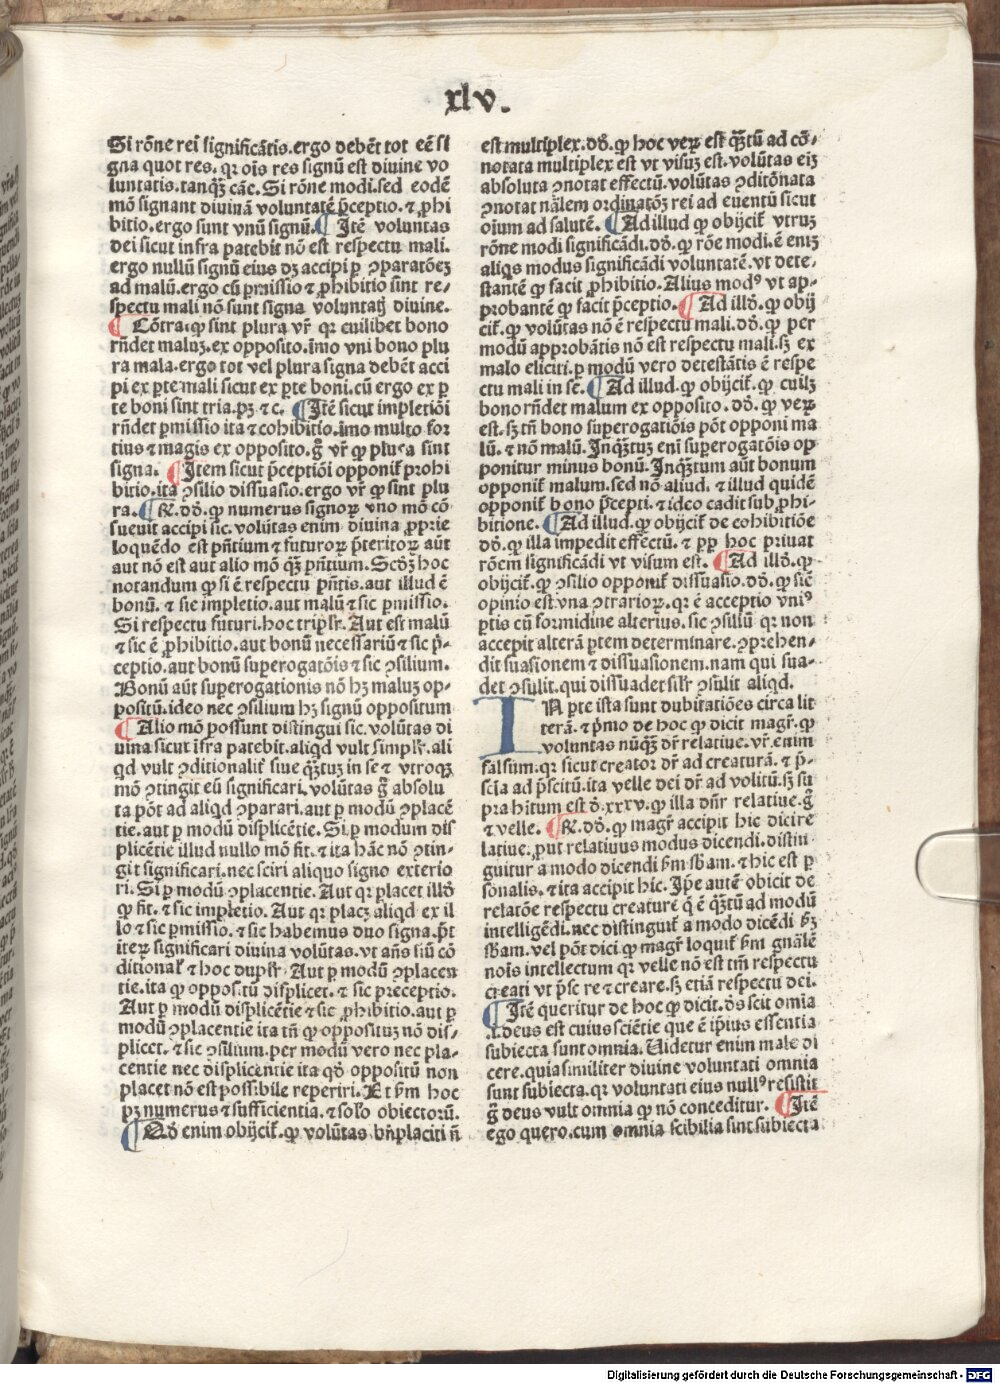 xlv.
Si rōne rei significātis.ergo debēt tot eē si
gna quot res.qꝛ oīs res signū est diuine vo
luntatis.tanq̄ꝫ cāe.Si rōne modi.sed eodē
mō signant diuinā voluntatē p̄ceptio.⁊ ꝓhi
bitio.ergo sunt vnū signū.¶ Itē voluntas
dei sicut infra patebit nō est respectu mali.
ergo nullū signū eius dꝫ accipi ꝑ ꝯparatōeꝫ
ad malū.ergo cū ꝑmissio ⁊ ꝓhibitio sint re-
spectu mali nō sunt signa voluntatꝭ diuine.
¶ Cōtra.ꝙ sint plura vr̄ qꝛ cuilibet bono
rn̄det maluꝫ.ex opposito.īmo vni bono plu
ra mala.ergo tot vel plura signa debēt acci
pi ex ꝑte mali sicut ex ꝑte boni.cū ergo ex ꝑ
te boni sint tria.pꝫ ⁊ c. ¶Itē sicut impletiōi
rn̄det ꝑmissio ita ⁊ cohibitio.īmo multo for
tius ⁊ magis ex opposito.ḡ vr̄ ꝙ plura sint
signa. ¶Item sicut p̄ceptiōi opponit̉ prohi
bitio.ita ꝯsilio dissuasio.ergo vr̄ ꝙ sint plu
ra.¶R̄.dō.ꝙ numerus signoꝝ vno mō cō
sueuit accipi sic.volūtas enim diuina ꝓprie
loquēdo est pn̄tium ⁊ futuroꝝ p̄teritoꝝ aūt
aut nō est aut alio mō q̄ꝫ pn̄tium.Scd̄ꝫ hoc
notandum ꝙ si ē respectu pn̄tis.aut illud ē
bonū. ⁊ sic impletio.aut malū ⁊ sic ꝑmissio.
Si respectu futuri.hoc tripl̉r.Aut est malū
⁊ sic ē ꝓhibitio.aut bonū necessariū ⁊ sic p̄-
ceptio.aut bonū suꝑogatōis ⁊ sic ꝯsilium.
Bonū aūt suꝑerogationis nō hꝫ maluꝫ op-
positū.ideo nec ꝯsilium hꝫ signū oppositum
¶Alio mō possunt distingui sic.volūtas di
uina sicut īfra patebit.aliqd vult simpl̉r.ali
qd vult ꝯditionalit̉ siue q̄ꝫtuꝫ in se ⁊ vtroqꝫ
mō ꝯtingit eū significari.volūtas ḡ absolu
ta pōt ad aliqd ꝯparari.aut ꝑ modū ꝯplacē
tie.aut ꝑ modū displicētie.Si ꝑ modum dis
plicētie illud nullo mō fit.⁊ ita hāc nō ꝯtin-
git significari.nec sciri aliquo signo exterio
ri.Si ꝑ modū ꝯplacentie.Aut qꝛ placet illd̄
ꝙ fit.⁊ sic impletio.Aut qꝛ placꝫ aliqd ex il
lo ⁊ sic ꝑmissio.⁊ sic habemus duo signa.p̄t
iteꝝ significari diuina volūtas.vt an̄s siū cō
ditionał ⁊ hoc dupl̉r Aut ꝑ modū ꝯplacen
tie.ita ꝙ oppositū displicet.⁊ sic preceptio.
Aut ꝑ modū displicētie ⁊ sic ꝓhibitio.aut ꝑ
modū ꝯplacentie ita tn̄ ꝙ oppositūꝫ nō dis-
plicet.⁊ sic ꝯsilium.per modū vero nec pla-
centie nec displicentie ita qd̄ oppositū non
placet nō est possibile reperiri.Et ẜm hoc
pꝫ numerus ⁊ sufficientia.⁊ solō obiectorū.
¶Qd̄ enim obijcit̉.ꝙ volūtas bn̄placiti n̄
est multiplex.dō.ꝙ hoc veꝝ est q̄ꝫtū ad cō-
notata multiplex est vt visuꝫ est.volūtas eiꝫ
absoluta ꝯnotat effectū.volūtas ꝯditōnata
ꝯnotat nālem ordinatōꝫ rei ad euentū sicut
oium ad salutē. ¶Ad illud ꝙ obijcit̉ vtruꝫ
rōne modi significādi.dō.ꝙ rōe modi.ē eniꝫ
aliqs modus significādi voluntatē.vt dete-
stantē ꝙ facit ꝓhibitio.Alius modꝰ vt ap-
probantē ꝙ facit p̄ceptio.¶Ad illd̄.ꝙ obij
cit̉.ꝙ volūtas nō ē respectu mali.dō.ꝙ per
modū approbātis nō est respectu mali.sꝫ ex
malo eliciti.ꝑ modū vero detestātis ē respe
ctu mali in se.¶Ad illud.ꝙ obijcit̉.ꝙ cuilꝫ
bono rn̄det malum ex opposito.dō.ꝙ veꝝ
est.sꝫ tn̄ bono suꝑerogatiōis pōt opponi ma
lū.⁊ nō malū.Inq̄ꝫtuꝫ eni suꝑerogatōis op
ponitur minus bonū.Inq̄ꝫtum aūt bonum
opponit̉ malum.sed nō aliud.⁊ illud quidē
opponit̉ bono p̄cepti.⁊ ideo cadit sub ꝓhi-
bitione.¶Ad illud.ꝙ obijcit̉ de cohibitiōe
dō.ꝙ illa impedit effectū.⁊ ꝓp̄ hoc priuat
rōem significādi vt visum est. ¶Ad illd̄.ꝙ
obijcit̉.ꝙ ꝯsilio opponit̉ dissuasio.dō.ꝙ sic̄
opinio est vna ꝯtrarioꝝ.qꝛ ē acceptio vniꝰ
ꝑtis cū formidine alterius.sic ꝯsiliū qꝛ non
accepit alterā ꝑtem determinare.ꝯprehen-
dit suasionem ⁊ dissuasionem.nam qui sua-
det ꝯsulit.qui dissuadet sil̉r ꝯsulit aliqd.
IN ꝑte ista sunt dubitatiōes circa lit
terā.⁊ p̄mo de hoc ꝙ dicit magr̄.ꝙ
voluntas nūq̄ꝫ dr̄ relatiue.vr̄.enim
falsum.qꝛ sicut creator dr̄ ad creaturā.⁊ p̄-
scia ad p̄scitū.ita velle dei dr̄ ad volitū.sꝫ su
pra hitum est d̄.xxxv.ꝙ illa dn̄r relatiue.ḡ
⁊ velle. ¶R̄.dō.ꝙ magr̄ accipit hic dicire
latiue.ꝓut relatiuus modus dicendi.distin
guitur a modo dicendi ẜm sb̄am.⁊ hic est ꝑ
sonalis.⁊ ita accipit hic.Ip̄e autē obicit de
relatōe respectu creature q̄ ē q̄ꝫtū ad modū
intelligēdi.nec distinguit̉ a modo dicēdi ẜm
sb̄am.vel pōt dici ꝙ magr̄ loquit̉ ẜm gn̄alē
nois intellectum qꝛ velle nō est tm̄ respectu
creati vt p̄sc re ⁊ creare.sꝫ etiā respectu dei.
¶Itē queritur de hoc ꝙ dicit.ds̄ scit omīa
.i.deus est cuius sciētie que ē ip̄ius essentia
subiecta sunt omnia.Uidetur enim male di
cere.quia similiter diuine voluntati omnia
sunt subiecta.qꝛ voluntati eius nullꝰ resistit
ḡ deus vult omnia ꝙ nō conceditur. ¶Itē
ego quero.cum omnia scibilia sint subiecta
Digitalisierung gefördert durch die Deutsche Forschungsgemeinschaft - DFG